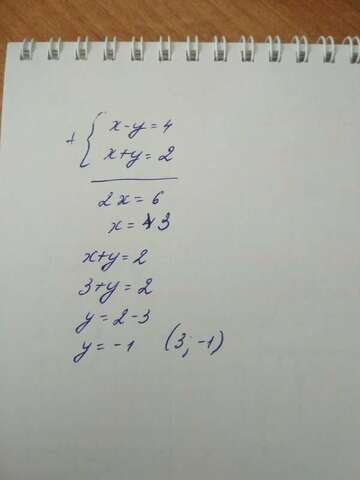 + { x-y=4
x+y=2
2x=6
x=3
x+y=2
3+y=2
y=2-3
y=-1 (3;-1)